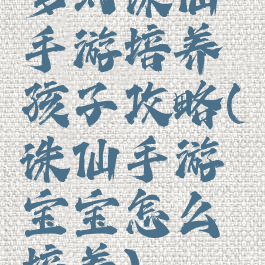 诛仙
手游培养
孩子攻略(
诛仙手游
宝宝怎么
培养)